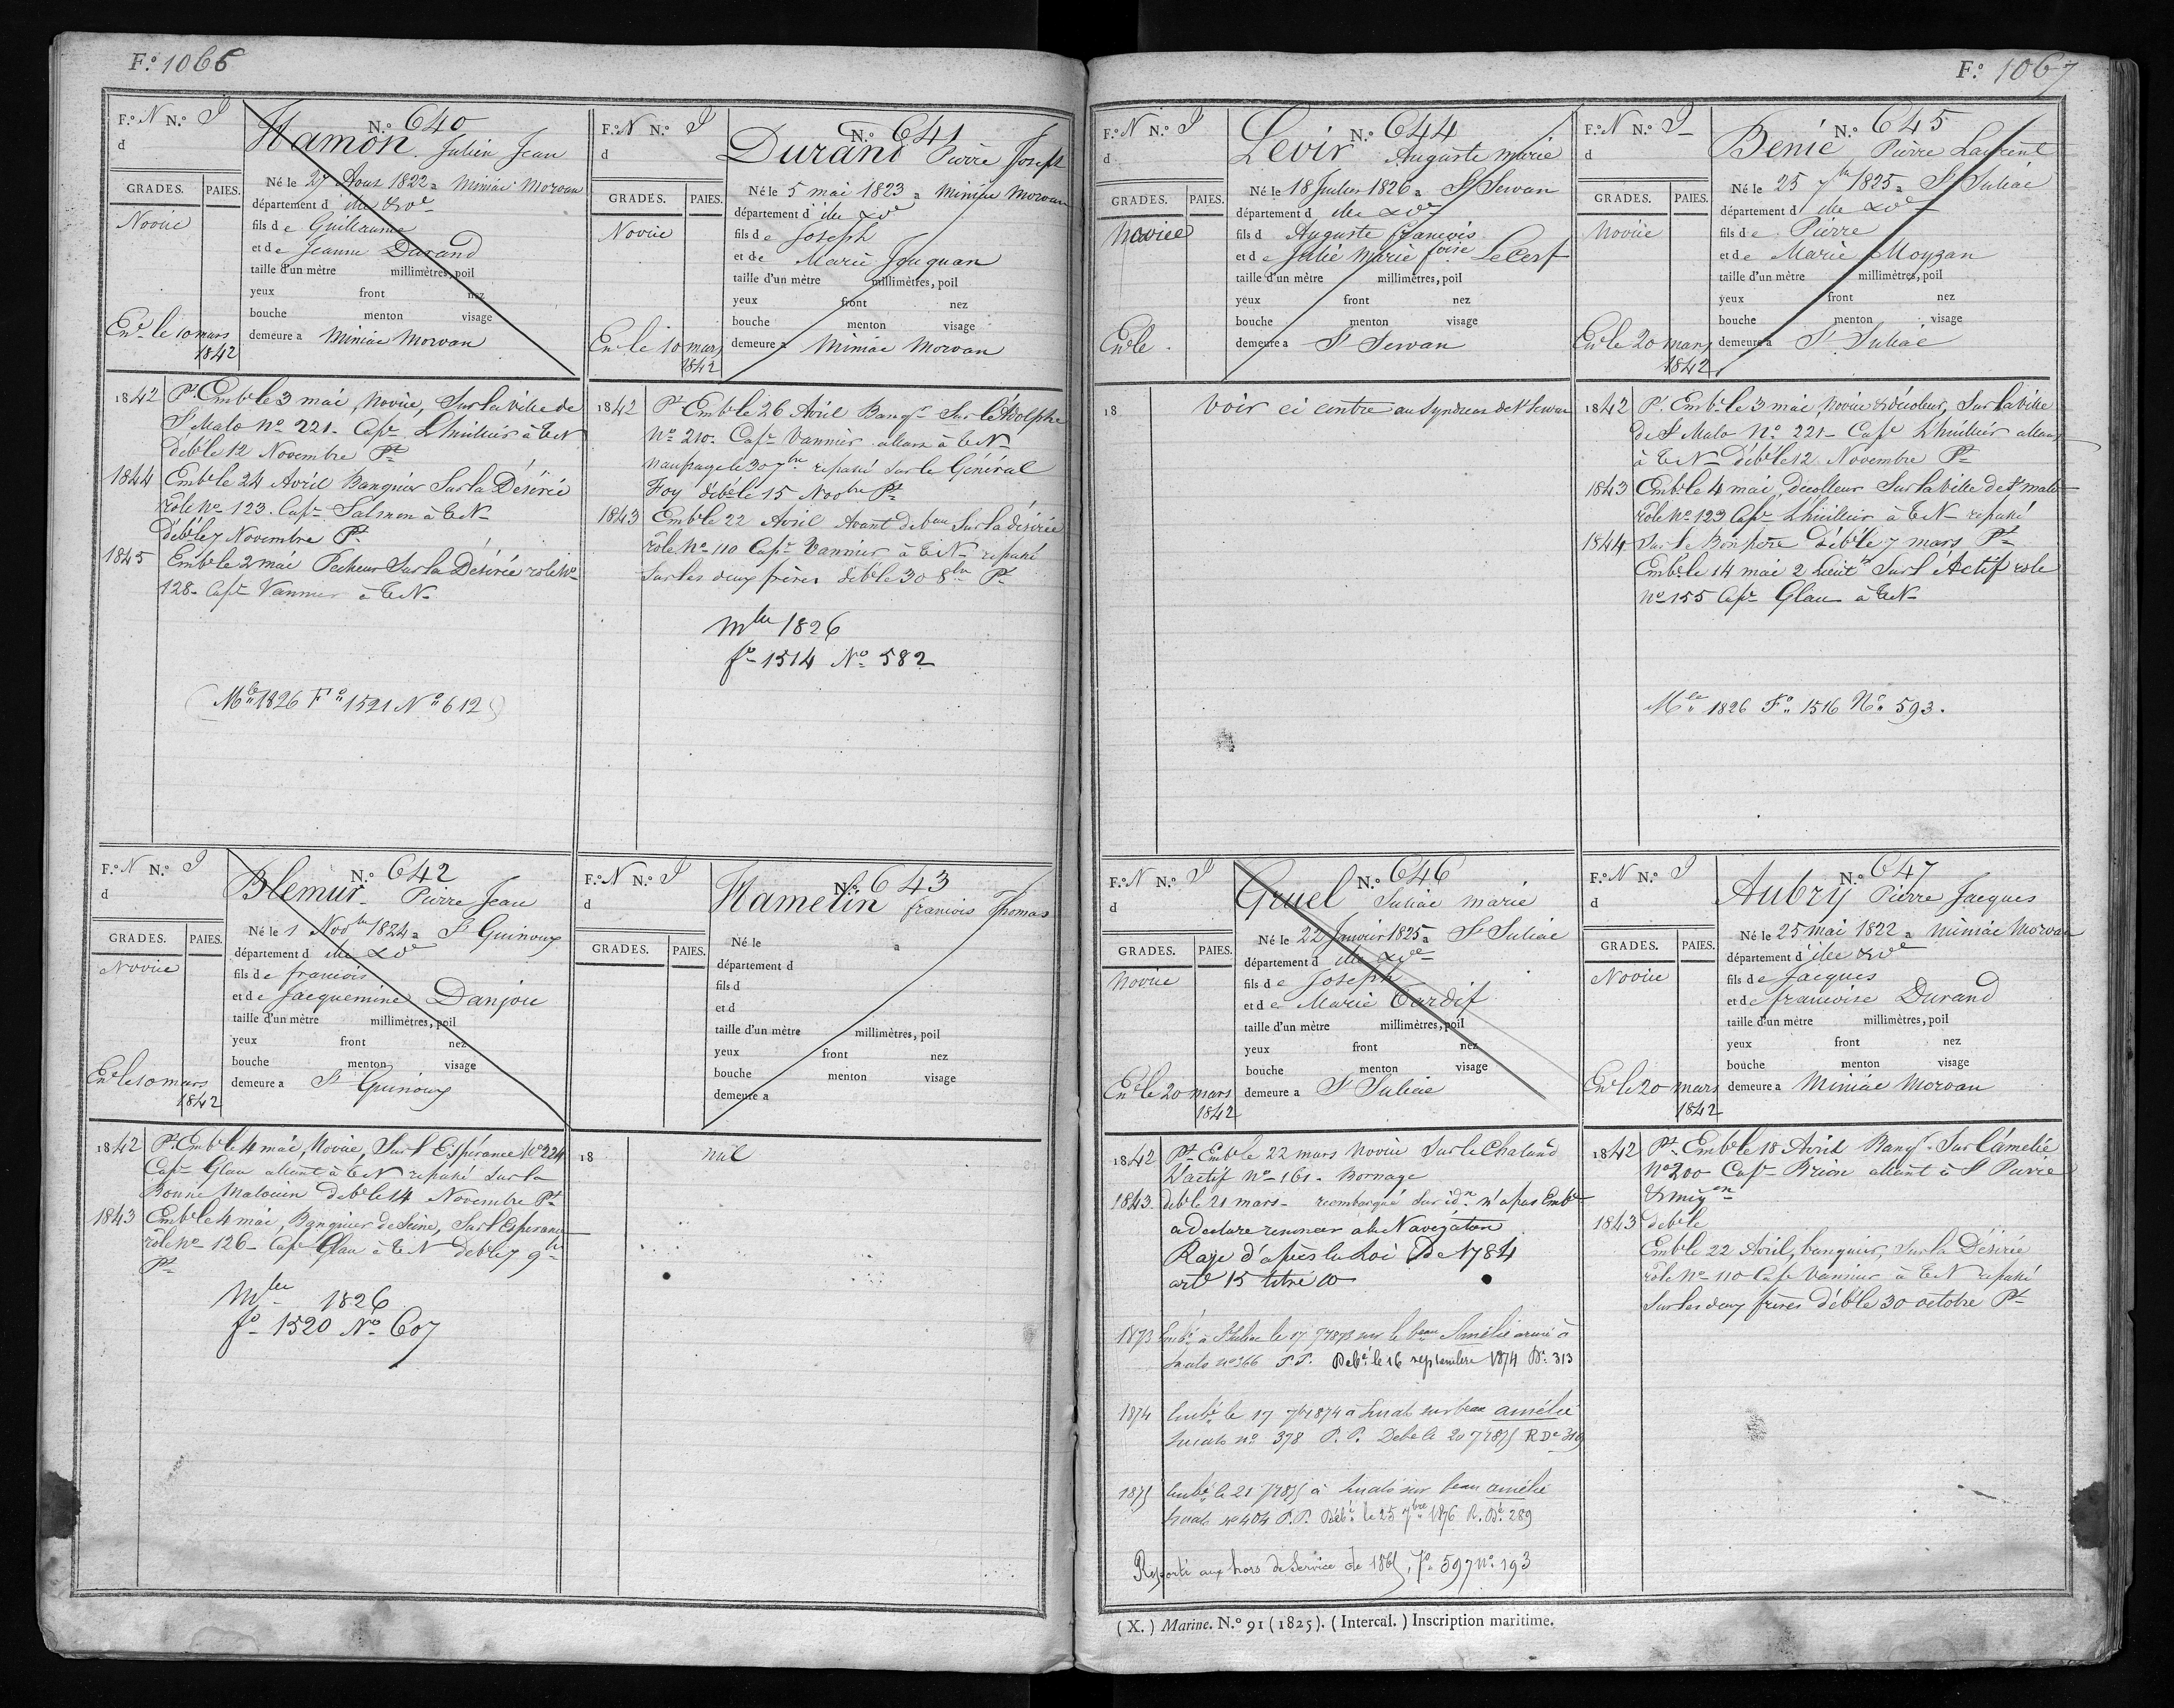 F.º 1066
F.º N N.º I
d
N.º 640
Hamon Julien Jean
GRADES. PAIES.
Novice
Né le 27 Aout 1822 a Miniac Morvan
département d ille &ve
fils de Guillaume
et de Jeanne Durand
taille d'un mètre millimètres, poil
yeux front nez
bouche menton visage
demeure a Miniac Morvan
Enr le 10 mars
1842
1842 Pt Emb le 3 mai, novice, Sur la ville de
St Malo Nº 221. Capne Lhuilier à TN
déb le 12 Novembre Pt
1844 Emb le 24 Avril Banquier Sur la Désirée
rôle Nº 123. Capne Salmon à TN
Déb le 7 Novembre Pt
1845 Emb le 2 mai Pecheur Sur la Désirée role Nº
128. Capne Vannier à TN
(Mle 1826 Fº 1521 Nº 612)
F.º N N.º I
d
N.º 641
Durand Pierre Joseph
GRADES. PAIES.
Novice
Né le 5 mai 1823 a Miniac Morvan
département d ille &ve
fils de Joseph
et de Marie Jouquan
taille d'un mètre millimètres, poil
yeux front nez
bouche menton visage
demeure a Miniac Morvan
Enr le 10 mars
1842
1842 Pt Emb le 26 Avril Banqr Sur l'Adolphe
Nº 210. Capne Vannier allant à TN
naufragé le 30 7bre repassé sur le Général
Foy déb le 15 Novbre Pt
1843 Emb le 22 Avril Avant de bau Sur la désirée
rôle Nº 110 Capne Vannier à TN repassé
Sur les deux frères déb le 30 8bre Pt
Mle 1826
fº 1514 Nº 582
F.º N N.º I
d
N.º 642
Blemur Pierre Jean
GRADES. PAIES.
Novice
Né le 1 Novbre 1824 a St Guinoux
département d ille &ve
fils de francois
et de Jacquemine Danjou
taille d'un mètre millimètres, poil
yeux front nez
bouche menton visage
demeure a St Guinoux
Enr le 10 mars
1842
1842 Pt Emb le 4 mai, Novice, Sur l'Espérance Nº 224
Capne Glau allant à TN repassé sur la
Bonne Malouin deb le 14 Novembre Pt
1843 Emb le 4 mai, Banquier de Seine, Sur l'Esperance
rôle Nº 126 Capne Glau à TN Deb le 7 9bre
Pt
Mle 1826
fº 1520 Nº 607
F.º N N.º I
d
N.º 643
Hamelin francois Thomas
GRADES. PAIES.
Né le a
département d
fils d
et d
taille d'un mètre millimètres, poil
yeux front nez
bouche menton visage
demeure a
18 nul
F.º 1067
F.º N N.º I
d
N.º 644
Levir Auguste marie
GRADES. PAIES.
Novice
Né le 18 Juillet 1826 a St Servan
département d ille &ve
fils d Auguste francois
et de Julie Marie foise LeCerf
taille d'un mètre millimètres, poil
yeux front nez
bouche menton visage
demeure a St Servan
Enr le
18 Voir ci contre au Syndicat de St Servan
F.º N N.º I
d
N.º 645
Benic Pierre Laurent
GRADES. PAIES.
Novice
Né le 25 7bre 1825 a St Suliac
département d ille &ve
fils de Pierre
et de Marie Moyzan
taille d'un mètre millimètres, poil
yeux front nez
bouche menton visage
demeure a St Suliac
Enr le 20 mars
1842
1842 Pt Emb le 3 mai, novice & décoleur, Sur la ville
de St Malo Nº 221 Capne Lhuilier allant
à TN déb le 12 Novembre Pt
1843 Emb le 4 mai, décolleur Sur la ville de St malo
rôle Nº 123 Capne Lhuilier à TN repassé
1844 Sur le Bon père déb le 7 mars Pt
Emb le 14 mai 2 Lieutt Sur l'Actif role
Nº 155 Capne Glau à TN
Mle 1826 Fº 1516 Nº 593.
F.º N N.º I
d
N.º 646
Gruel Suliac marie
GRADES. PAIES.
Novice
Né le 22 Janvier 1825 a St Suliac
département d ille &ve
fils de Joseph
et de Marie Tardif
taille d'un mètre millimètres, poil
yeux front nez
bouche menton visage
demeure a St Suliac
Enr le 20 mars
1842
1842 Pt Emb le 22 mars Novice Sur le Chaland
L'actif Nº 161. Bornage
1843 deb le 21 mars. reembarqué sur idn. n'a pas Emb
a Declaré renoncer à la Navigation
Rayé d'après la Loi De 1784
art 15 titre 10
1873 Emb à St Suliac le 17 7 1873 sur le beau Amélie armé à
St malo nº 366 P.P. Debé le 16 septembre 1874 Dt 313
1874 Embé le 17 7bre 1874 a St malo sur beau amélie
St malo nº 378 P.P. Debé le 20 7 1875 R De 319
1875 Embé le 21 7 1875 à St malo sur beau amélie
St malo nº 404 P.P. Débé le 25 7bre 1876 R. Dé 289
Reporté aux hors de Service de 1865, Fº 597 nº 193
F.º N N.º I
d
N.º 647
Aubry Pierre Jacques
GRADES. PAIES.
Novice
Né le 25 mai 1822 a Miniac Morvan
département d ille &ve
fils de Jacques
et de francoise Durand
taille d'un mètre millimètres, poil
yeux front nez
bouche menton visage
demeure a Miniac Morvan
Enr le 20 mars
1842
1842 Pt Emb le 18 Avril Banqr Sur l'amelie
Nº 200 Capne Brion allant à St Pierre
& miqon
1843 deb le
Emb le 22 Avril, banquier, Sur la Désirée
rôle Nº 110 Capne Vannier à TN repassé
Sur les deux frères déb le 30 octobre Pt
(X.) Marine. N.º 91 (1825). (Intercal.) Inscription maritime.